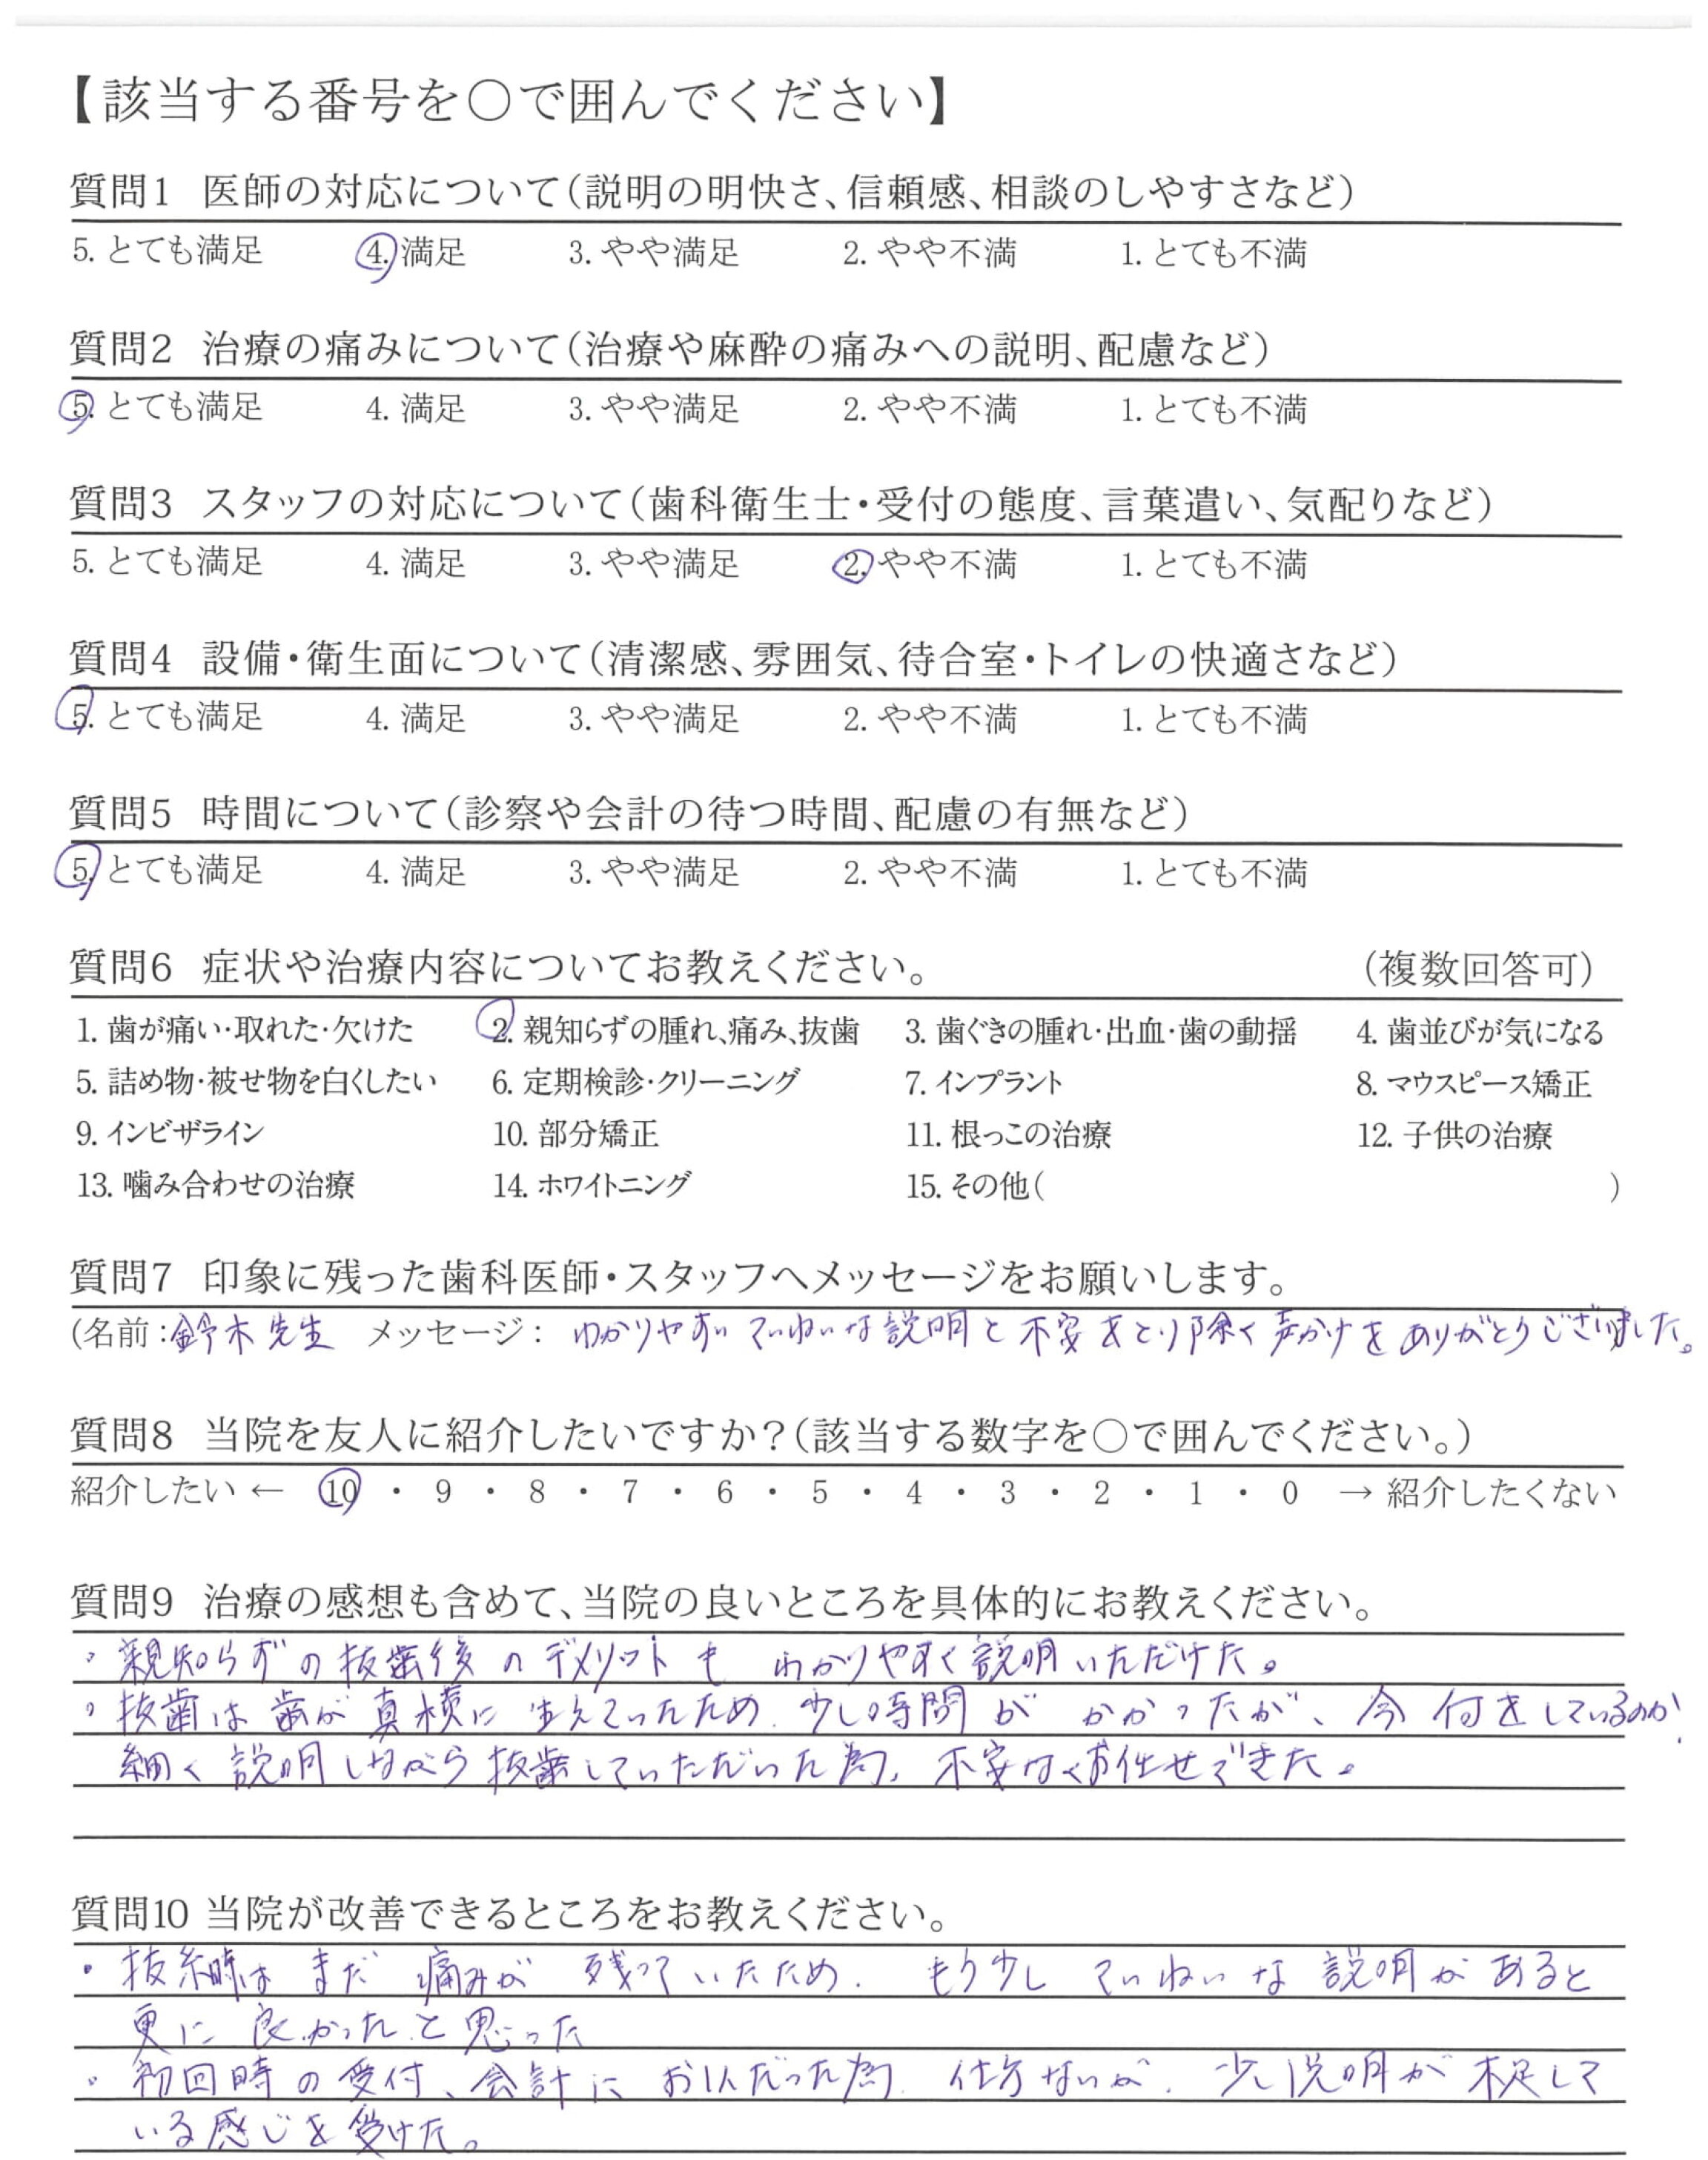 【該当する番号を○で囲んでください】
質問1 医師の対応について（説明の明快さ、信頼感、相談のしやすさなど）
5. とても満足 4. 満足 3. やや満足 2. やや不満 1. とても不満
質問2 治療の痛みについて（治療や麻酔の痛みへの説明、配慮など）
5. とても満足 4. 満足 3. やや満足 2. やや不満 1. とても不満
質問3 スタッフの対応について（歯科衛生士・受付の態度、言葉遣い、気配りなど）
5. とても満足 4. 満足 3. やや満足 2. やや不満 1. とても不満
質問4 設備・衛生面について（清潔感、雰囲気、待合室・トイレの快適さなど）
5. とても満足 4. 満足 3. やや満足 2. やや不満 1. とても不満
質問5 時間について（診察や会計の待つ時間、配慮の有無など）
5. とても満足 4. 満足 3. やや満足 2. やや不満 1. とても不満
質問6 症状や治療内容についてお教えください。 （複数回答可）
1. 歯が痛い・取れた・欠けた 2. 親知らずの腫れ、痛み、抜歯 3. 歯ぐきの腫れ・出血・歯の動揺 4. 歯並びが気になる
5. 詰め物・被せ物を白くしたい 6. 定期検診・クリーニング 7. インプラント 8. マウスピース矯正
9. インビザライン 10. 部分矯正 11. 根っこの治療 12. 子供の治療
13. 噛み合わせの治療 14. ホワイトニング 15. その他（ ）
質問7 印象に残った歯科医師・スタッフへメッセージをお願いします。
（名前：鈴木先生 メッセージ： わかりやすい ていねいな説明と不安をとり除く声かけをありがとうございました。
質問8 当院を友人に紹介したいですか？（該当する数字を○で囲んでください。）
紹介したい ← 10 ・ 9 ・ 8 ・ 7 ・ 6 ・ 5 ・ 4 ・ 3 ・ 2 ・ 1 ・ 0 → 紹介したくない
質問9 治療の感想も含めて、当院の良いところを具体的にお教えください。
・親知らずの抜歯後のデメリットも わかりやすく説明いただけた。
・抜歯は歯が真横に生えていたため、少し時間が かかったが、今何をしているのか
細く説明しながら抜歯していただいた為、不安なくお任せできた。
質問10 当院が改善できるところをお教えください。
・抜糸時は まだ 痛みが 残っていたため、もう少し ていねいな 説明があると
更に良かったと思った
・初回時の受付、会計に お1人だった為、仕方ないが、少し説明が不足して
いる感じを受けた。